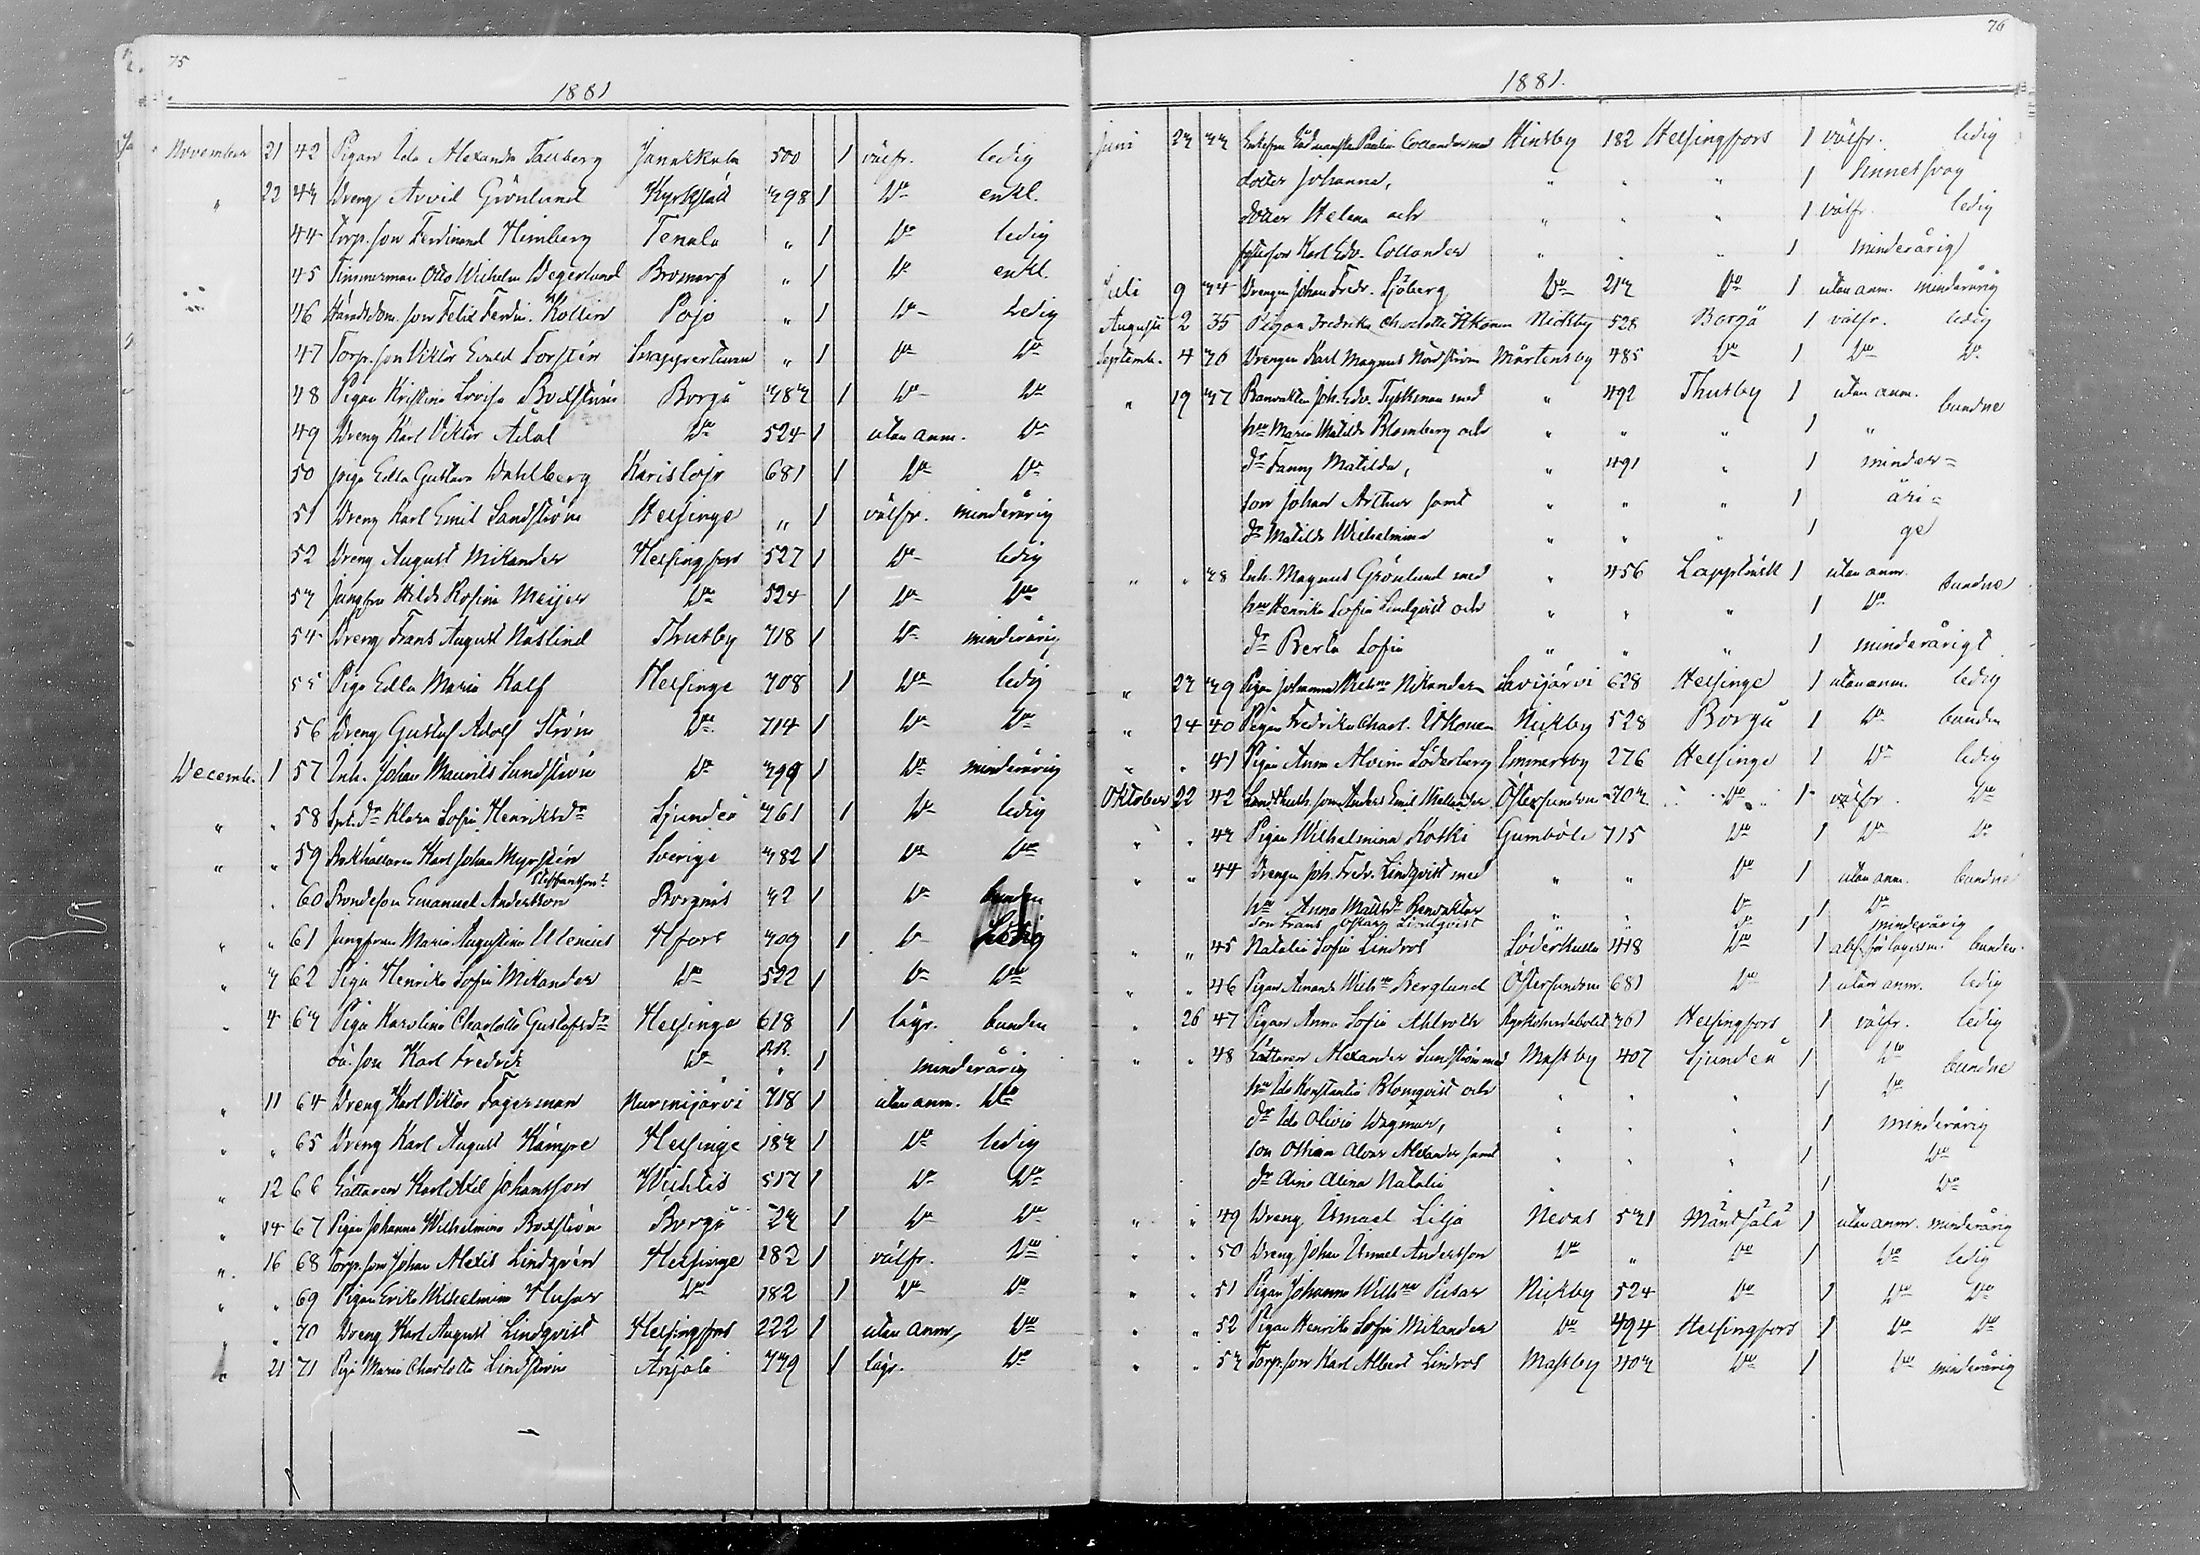 75
1881
November 21 42 Pigan Ida Alexandra Tallberg Janakkala 500 1 välfr. ledig
" 22 43 Dreng Arvid Grönlund Kyrkslätt 398 1 Do enkl.
44 Torp. son Ferdinand Himberg Tenala " 1 Do ledig
45 Timmerman Otto Wilhelm Wegerlund Bromarf " 1 Do enkl.
46 son Felix Ferdin. Kollin Pojo " 1 Do Ledig
47 Torp. son Viktor Evald Forstén Snappertuna " 1 Do Do
48 Pigan Kristina Lovisa Boxström Borgå 383 1 Do Do
49 Dreng Karl Viktor Adal Do 524 1 utan anm. Do
50 piga Edla Gustava Wahlberg Karislojo 681 1 Do Do
51 Dreng Karl Emil Sandström Helsinge " 1 välfr. minderårig
52 Dreng August Mikander Helsingfors 527 1 Do ledig
53 Jungfru Hilda Rosina Meijer Do 524 1 Do Do
54 Dreng Frans August Näslind Thusby 718 1 Do minderårig
55 Piga Edla Maria Kalf Helsinge 708 1 Do ledig
56 Dreng Gustaf Adolf Ström Do 714 1 Do Do
Decemb. 1 57 Inh. Johan Maurits Sundström Do 399 1 Do minderårig
" " 58 Spt. dr Klara Sofia Henriksdr Sjundeå 361 1 Do ledig
" " 59 Bokhållaren Karl Johan Myrstén Sverige 382 1 Do Do
Steffansson
" 60 Bondeson Emanuel Andersson Borgnäs 32 1 Do bunden
" " 61 Jungfrun Maria Augustina Ulenius Hfors 309 1 Do Ledig
" 3 62 Piga Henrika Sofia Mikander Do 522 1 Do Do
" 4 63 Piga Karolina Charlotta Gustafsdr Helsinge 618 1 lägr. bunden
oä. son Karl Fredrik Do " 1 minderårig
" 11 64 Dreng Karl Viktor Fagerman Nurmijärvi 718 1 utan anm. Do
" " 65 Dreng Karl August Kämpe Helsinge 183 1 Do ledig
" 12 66 Gåttaren Karl Axel Johansson Wichtis 517 1 Do Do
" 14 67 Pigan Johanna Wilhelmina Boxström Borgå 23 1 Do Do
" 16 68 Torp. son Johan Alexis Lindqvén Helsinge 182 1 välfr. Do
" " 69 Pigan Erika Wilhelmina Husar Do 182 1 Do Do
" 70 Dreng Karl August Lindqvist Helsingfors 222 1 utan anm. Do
21 71 Piga Maria Charlotta Lindström Anjala 339 1 lägr. Do
76
1881.
Juni 23 33 Paulin Collander med Hindsby 182 Helsingfors 1 välfr. ledig
dotter Johanna, " " " 1 sinnessvag
dotter Helena och " " " 1 välfr. ledig
fosterson Karl Edv. Collander " " " 1 minderårig
Juli 9 34 Drengen Johan Fredr. Sjöberg Do 213 Do 1 utan anm. minderårig
Augusti 2 35 Pigan Fredrika Charlotta Ikonen Nickby 528 Borgå 1 välfr. ledig
Septemb. 4 36 Drengen Karl Magnus Nordström Mårtensby 485 Do 1 Do Do
" 19 37 Banvakten Joh. Edv. Tyskman med " 492 Thusby 1 utan anm. bundne
hu Maria Matilda Blomberg och " " " 1 "
dr Fanny Matilda, " 491 " 1 minder=
son Johan Arthur samt " " " 1 åri=
dr Matilda Wilhelmina " " " 1 ge
" " 38 Inh. Magnus Grönlund med " 456 Lappträsk 1 utan anm. bundne
hu Henrika Sofia Lindqvist och " " " 1 Do
dr Berta Sofia " " " 1 minderårigt
" 23 39 Pigan Johanna Mikander Savijärvi 628 Helsinge 1 utan anm. ledig
" 24 40 Pigan Fredrika Charl. Ikonen Nickby 528 Borgå 1 Do bunden
" " 41 Pigan Anna Alvina Söderberg Immersby 276 Helsinge 1 Do ledig
Oktober 22 42 son Anders Emil Mellander Östersundom 703 Do 1 välfr. Do
" " 43 Pigan Wilhelmina Koski Gumböle 715 Do 1 Do Do
" " 44 Drengen Joh. Fredr. Lindqvist med " " Do 1 utan anm. bundne
hu Anna Matilda " " Do 1 Do
son Frans Oskar Lindqvist Do 1 minderårig
" " 45 Natalia Sofia Lindros Söderkulla 418 Do 1 bunden
" " 46 Pigan Amanda Wilhna Berglund Östersundom 681 Do 1 utan anm. ledig
" 26 47 Pigan Anna Sofia Ahlroth 361 Helsingfors 1 välfr. ledig
" " 48 Gåttaren Alexander Sundström med Massby 407 Sjundeå 1 Do bundne
hu Ida Konstantia Blomqvist och " " " 1 Do
dr Ida Olivia Dagmar, " " " 1 minderårig
son Ossian Alvar Alexander samt " " " 1 Do
dr Aina Alina Natalia " " 1 Do
" " 49 Dreng Ismael Lilja Nevas 531 Mäntsälä 1 utan anm. minderårig
" " 50 Dreng Johan Ismael Andersson Do " Do 1 Do ledig
" " 51 Pigan Johanna Wilhna Pusar Nickby 524 Do 1 Do Do
" " 52 Pigan Henrika Sofia Mikander Do 494 Helsingfors 1 Do Do
" " 53 Torp. son Karl Albert Lindros Massby 403 Do 1 Do minderårig